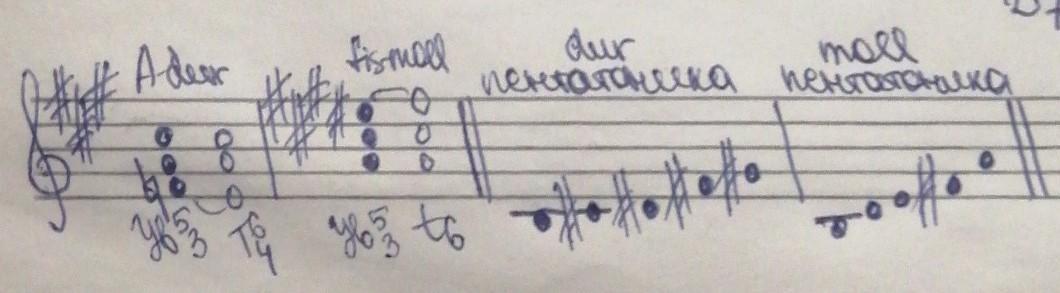 A-dur fis moll dur moll
пентатоника пентатоника
Ув5 3 T6 4 Ув5 3 t6